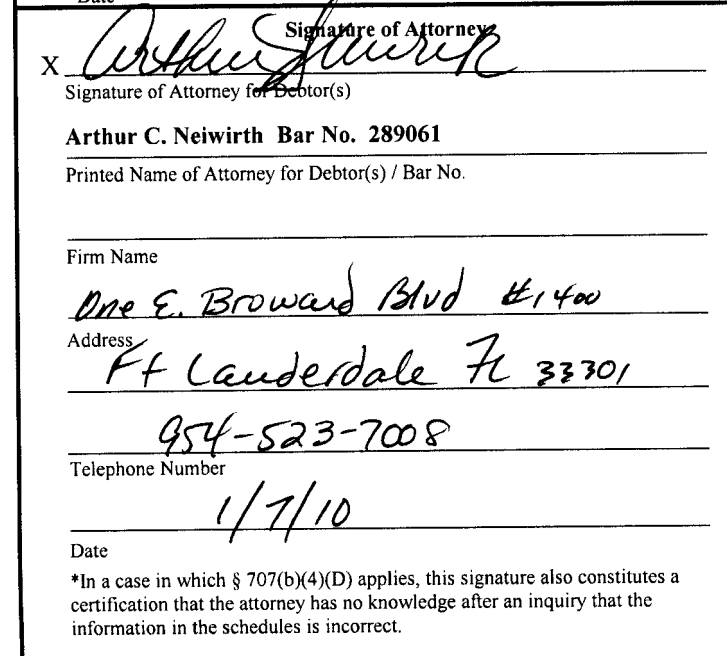 Signature of Attorney
X
Signature of Attorney for Debtor(s)
Arthur C. Neiwirth Bar No. 289061
Printed Name of Attorney for Debtor(s) / Bar No.
Firm Name
One E. Broward Blvd #1400
Address
Ft Lauderdale FL 33301
954-523-7008
Telephone Number
1/7/10
Date
*In a case in which § 707(b)(4)(D) applies, this signature also constitutes a
certification that the attorney has no knowledge after an inquiry that the
information in the schedules is incorrect.